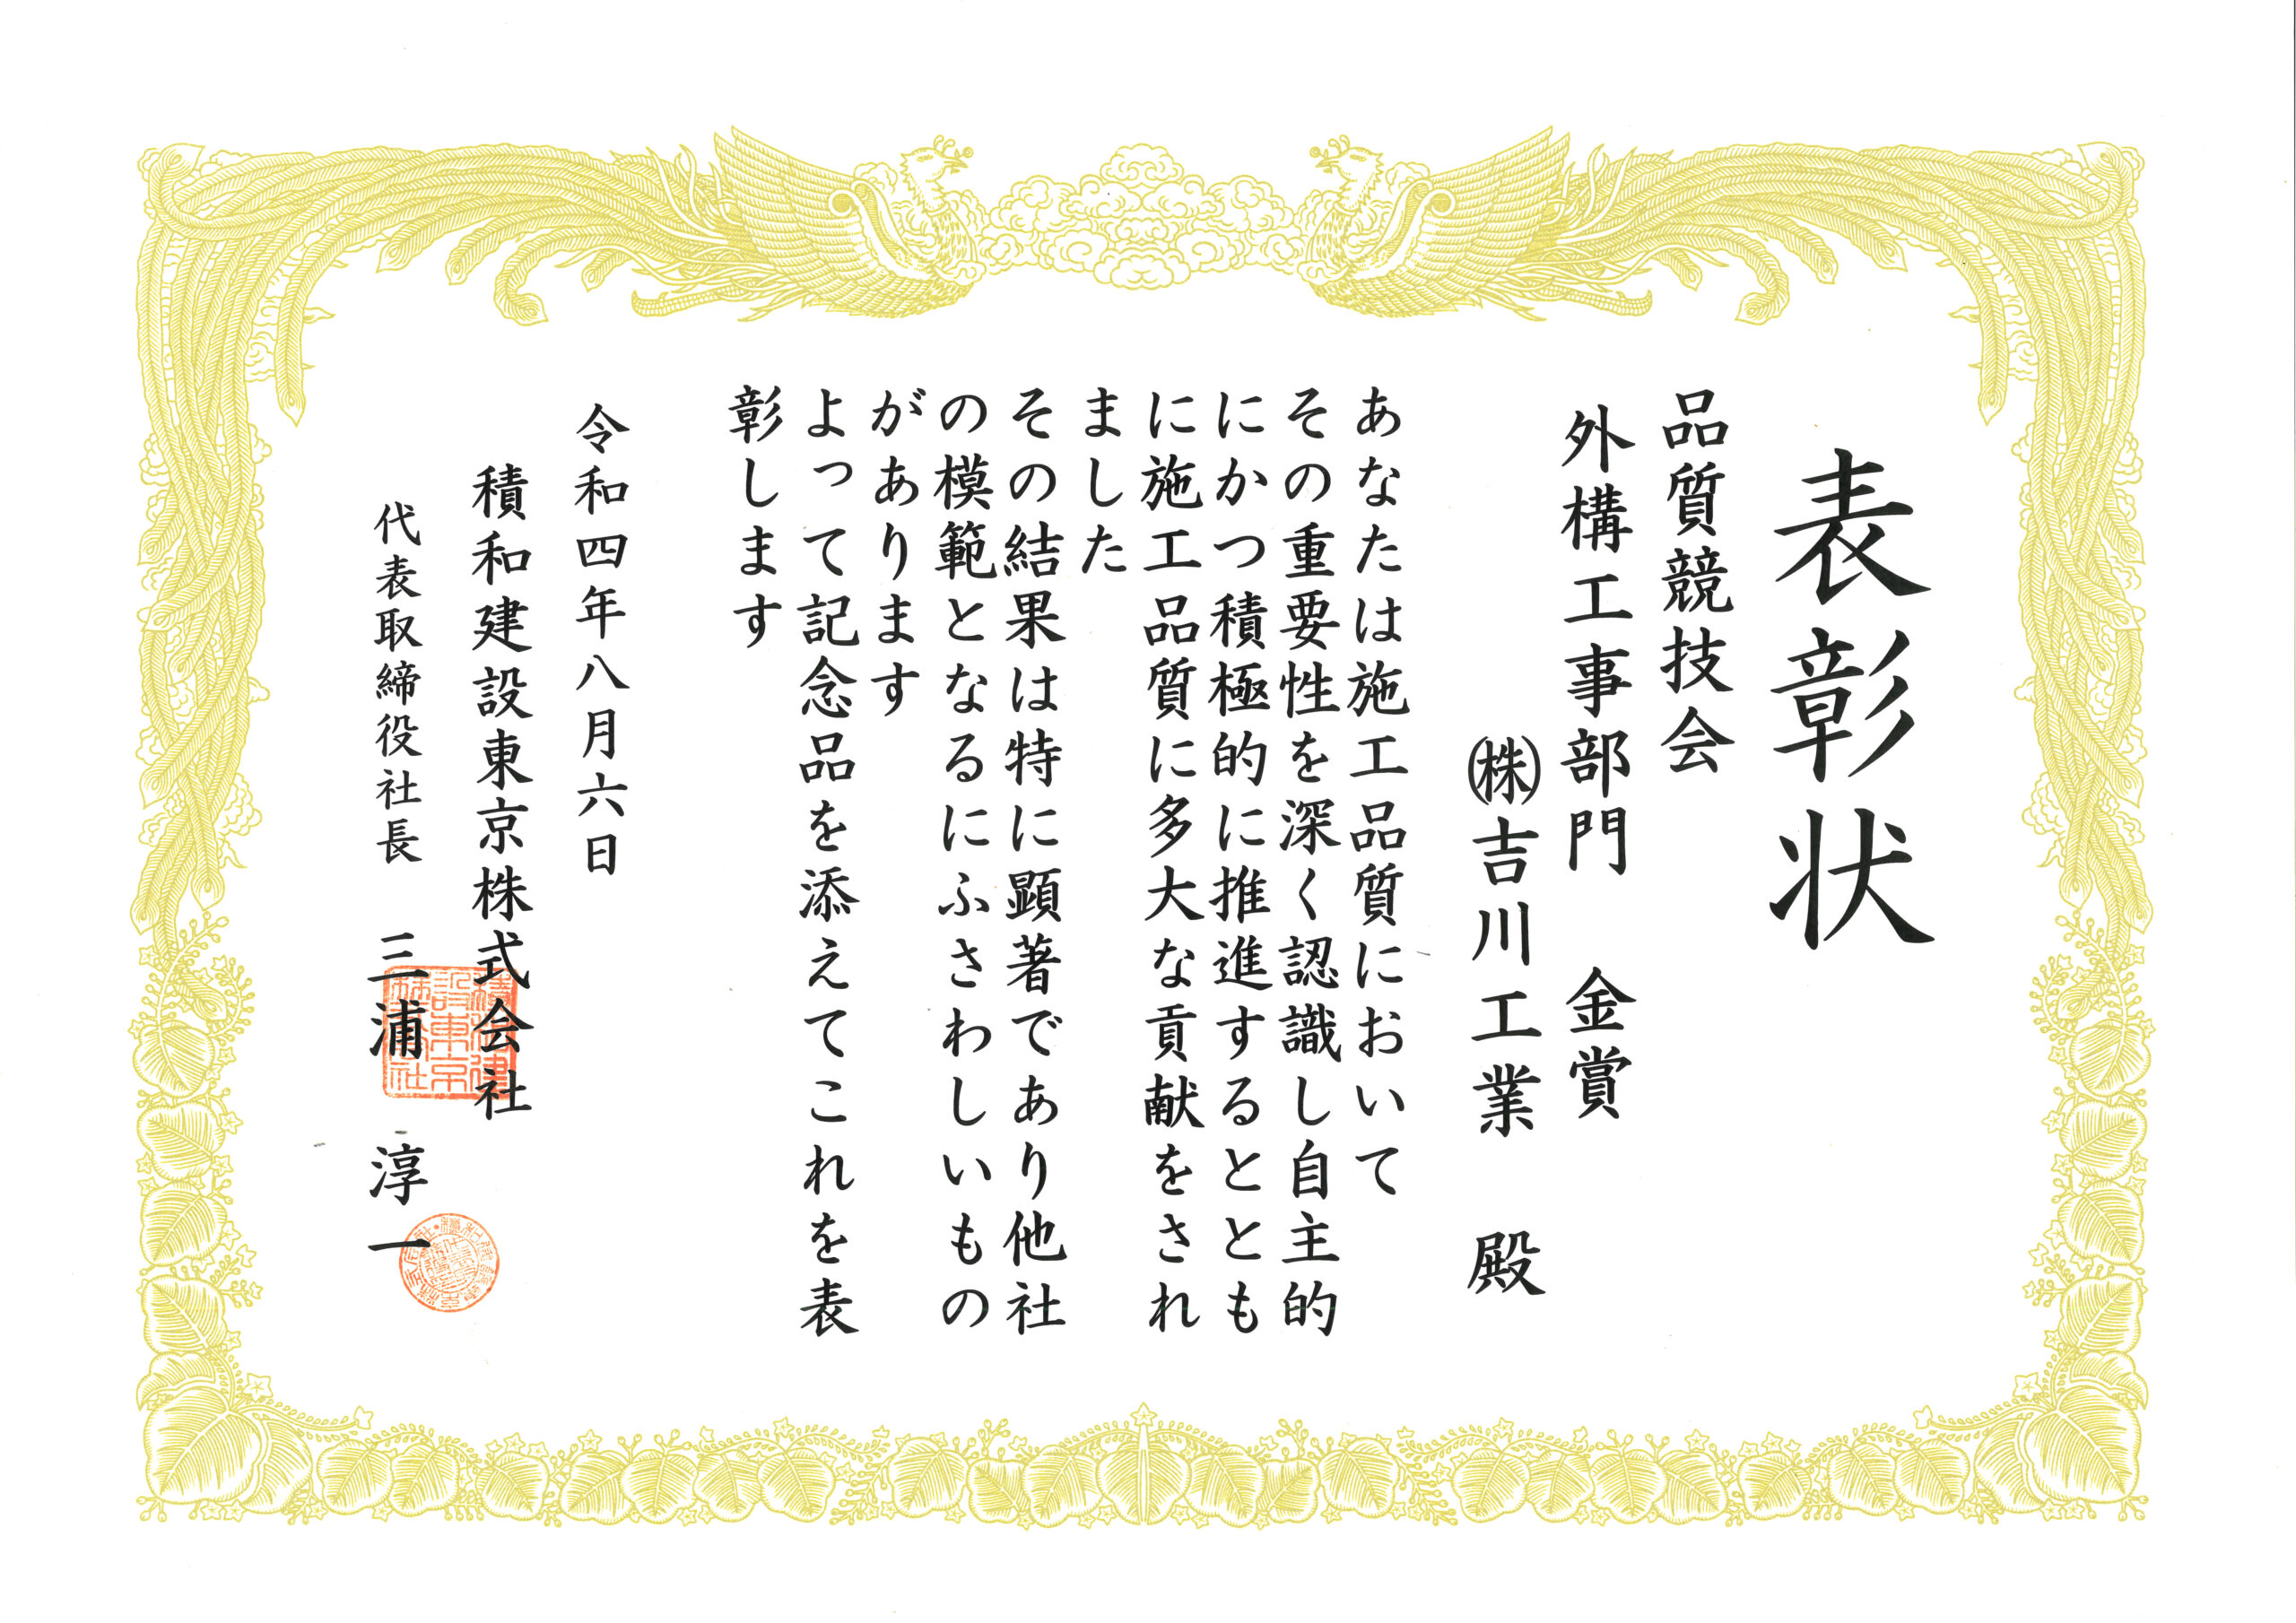 表彰状
品質競技会
外構工事部門 金賞
㈱吉川工業 殿
あなたは施工品質において
その重要性を深く認識し自主的
にかつ積極的に推進するととも
に施工品質に多大な貢献をされ
ました
その結果は特に顕著であり他社
の模範となるにふさわしいもの
があります
よって記念品を添えてこれを表
彰します
令和四年八月六日
積和建設東京株式会社
代表取締役社長 三浦 淳一
積和建
設東京
株式会社